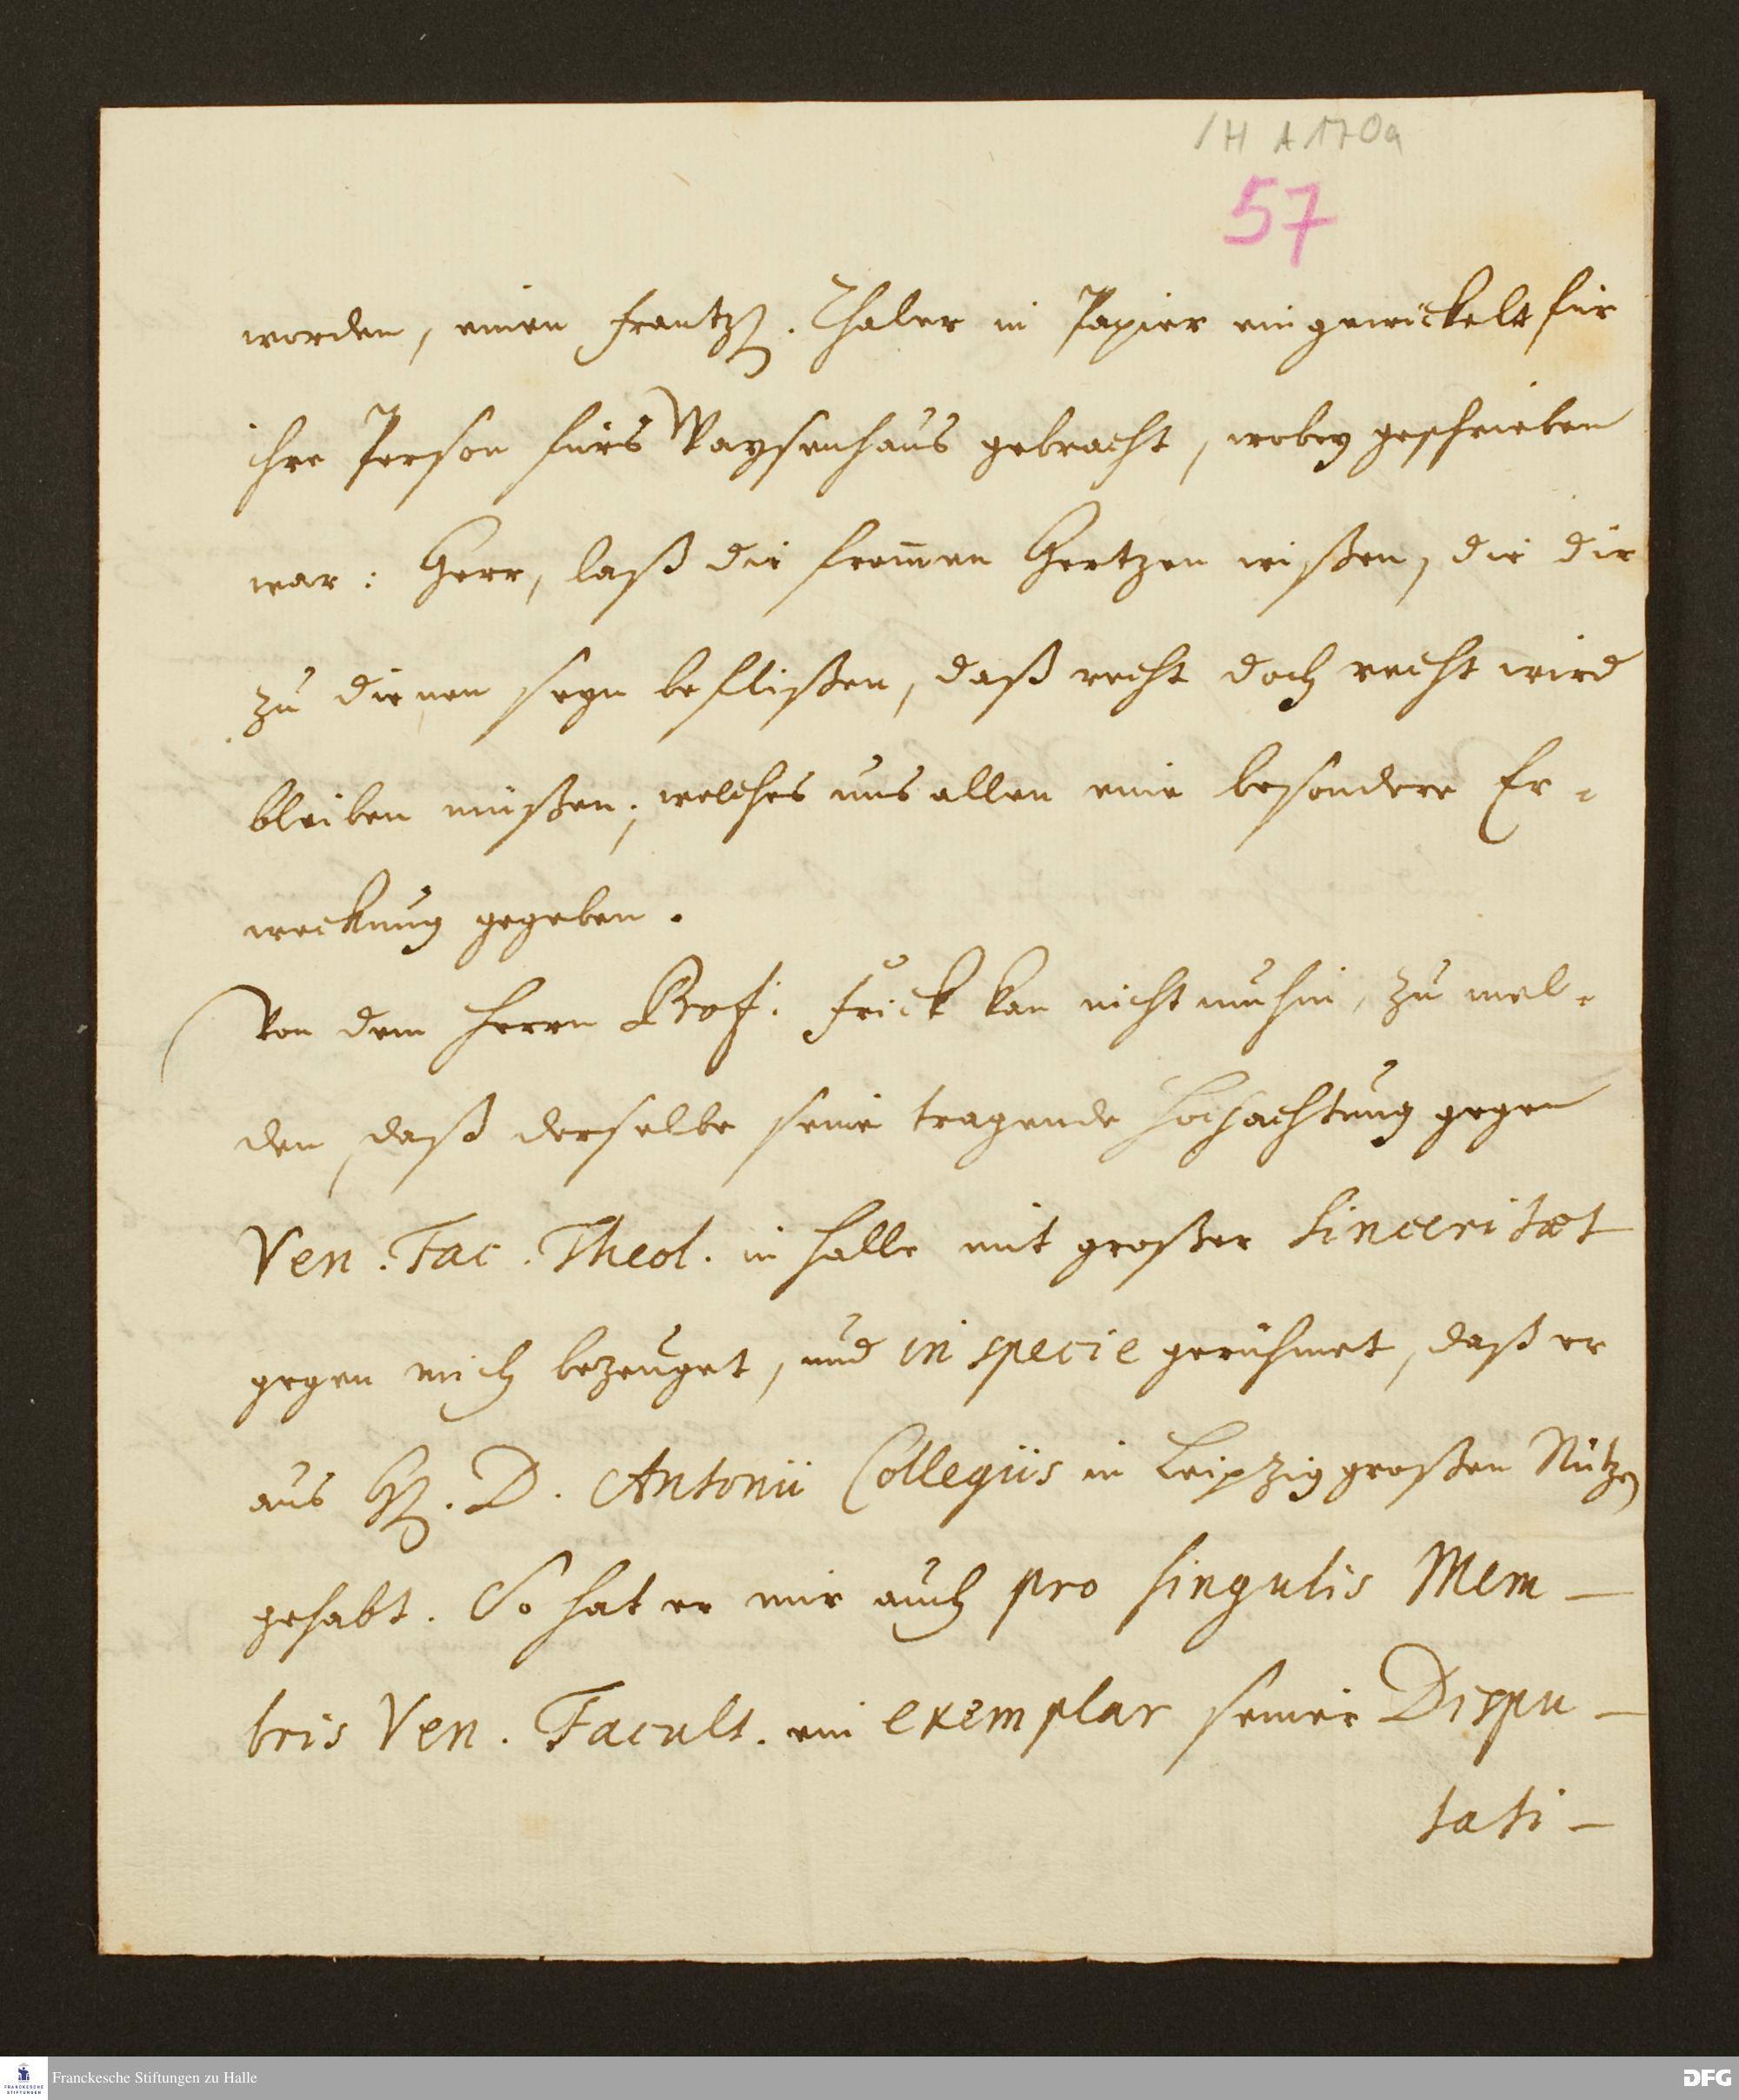 /H A 170a
57
worden, einen Frantzß. Thaler in Papier eingewickelt für
ihre Person fürs Waysenhaus gebracht, wobey geschrieben
war: Herr, laß die from̄en Hertzen wißen, die dir
zu dienen seyn beflißen, daß recht doch recht wird
bleiben müßen; welches uns allen eine besondere Er-
weckung gegeben.
Von dem Herrn Prof. Frick kan nicht umhin, zu mel-
den, daß derselbe seine tragende Hochachtung gegen
Ven. Fac. Theol. in Halle mit großer Sinceritæt
gegen mich bezeuget, und in specie gerühmet, daß er
aus H. D. Antonii Collegiis in Leipzig großen Nutzen
gehabt. So hat er mir auch pro singulis Mem-
bris Ven. Facult. ein exemplar seiner Dispu-
tati-
Franckesche Stiftungen zu Halle
FRANCKESCHE
STIFTUNGEN
DFG